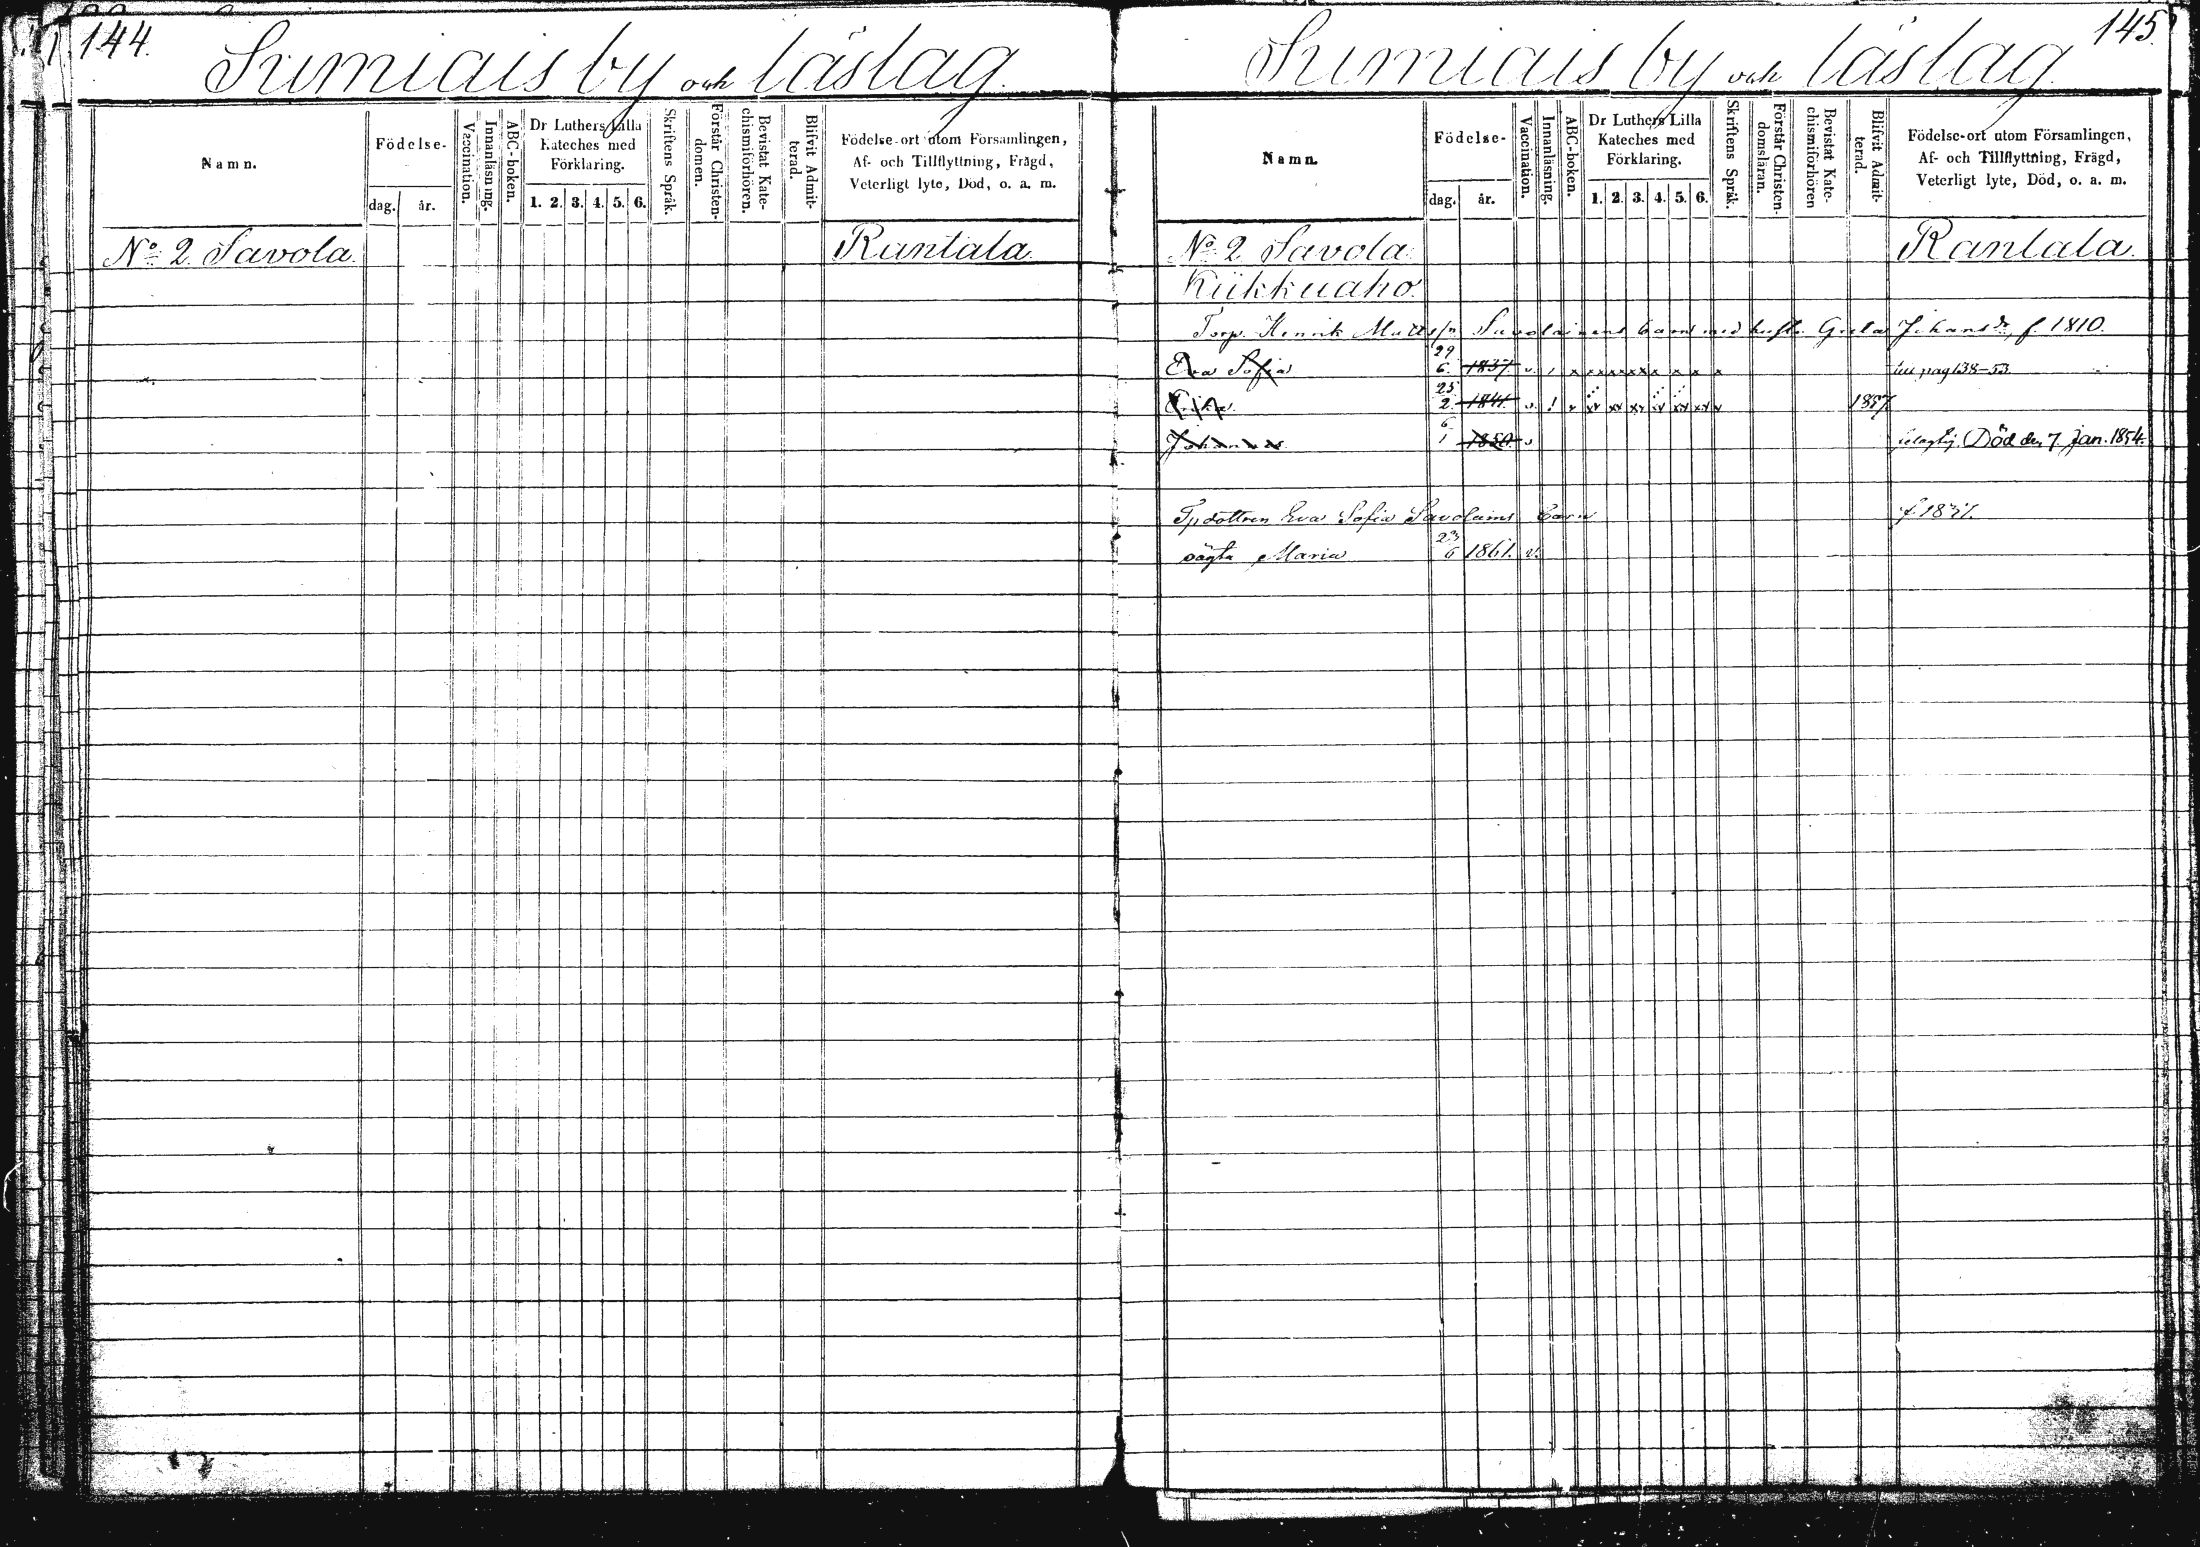 144.
Sumiais by och läslag.
Namn.
Födelse-
dag.
år.
Vaccination.
Innanläsning.
ABC-boken.
Dr Luthers Lilla
Kateches med
Förklaring.
1. 2. 3. 4. 5. 6.
Skriftens Språk.
Förstår Christen-
domen.
Bevistat Kate-
chismiförhören.
Blifvit Admit-
terad.
Födelse-ort utom Församlingen,
Af- och Tillflyttning, Frägd,
Veterligt lyte, Död, o. a. m.
No 2 Savola.
Rantala.
145.
Sumiais by och läslag.
Namn.
Födelse-
dag.
år.
Vaccination.
Innanläsning.
ABC-boken.
Dr Luthers Lilla
Kateches med
Förklaring.
1. 2. 3. 4. 5. 6.
Skriftens Språk.
Förstår Christen-
domsläran.
Bevistat Kate-
chismiförhören
Blifvit Admit-
terad.
Födelse-ort utom Församlingen,
Af- och Tillflyttning, Frägd,
Veterligt lyte, Död, o. a. m.
No 2 Savola.
Rantala.
Kiikkuaho.
Torp. Henrik Savolainens barn med hust. Greta Johansdr, f. 1810.
Eva Sofia 29 6. 1837 v. pag 138-53
25 2. 1841. v. 1857
Johannes 6 1 1850 v Död den 7 Jan. 1854.
Eva Sofia Savolains barn
oägta Maria 23 6 1861. v.